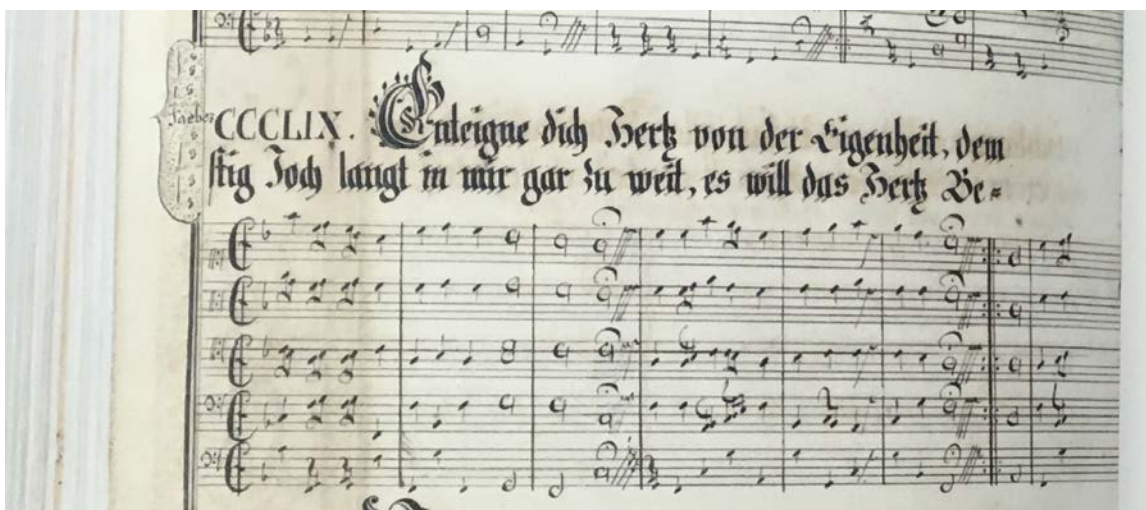 CCCLIX. Enteigne dich Hertz von der Eigenheit, dem
stig Joch langt in mir gar zu weit, es will das Hertz Be=